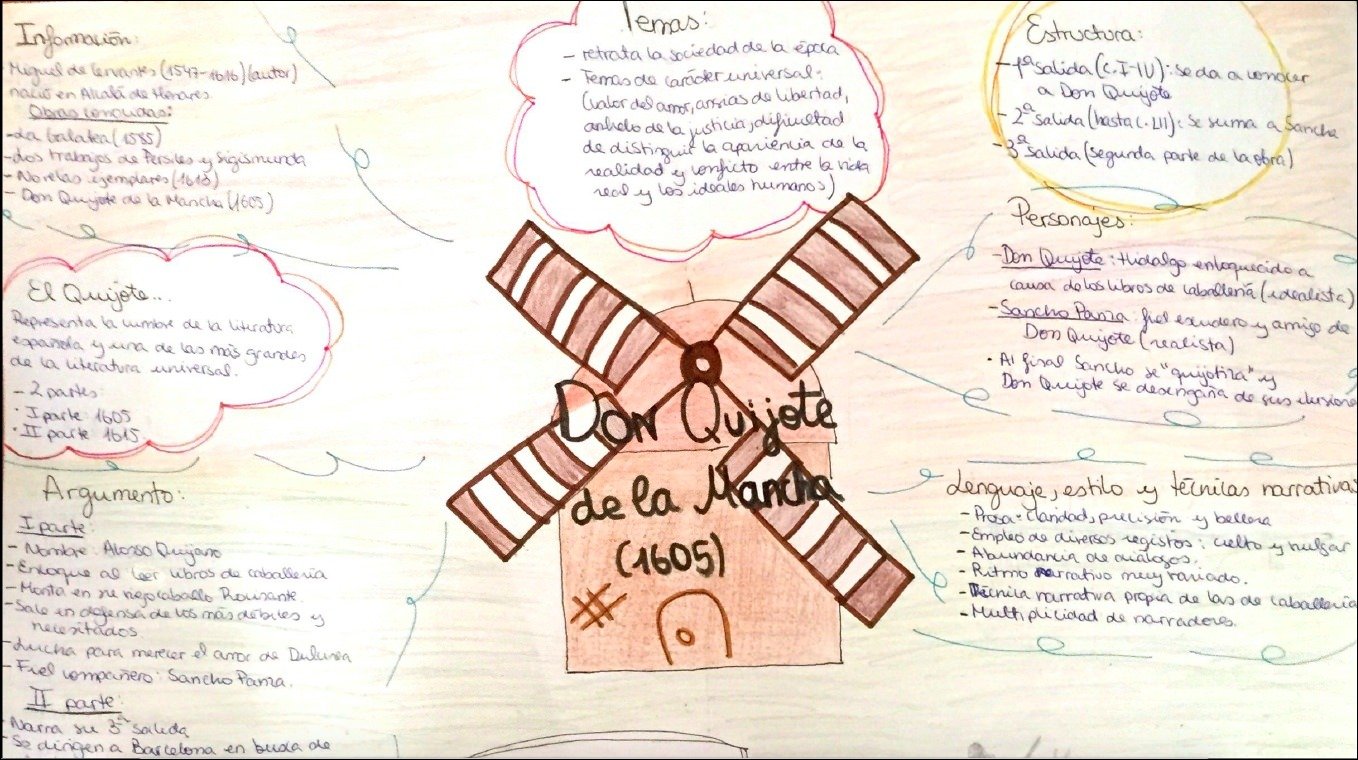 Información:
Miguel de Cervantes (1547-1616) (autor)
nació en Alcalá de Henares
Obras conocidas:
-La Galatea (1585)
-Los trabajos de Persiles y Sigismunda
-Novelas ejemplares (1613)
- Don Quijote de la Mancha (1605)
El Quijote...
Representa la cumbre de la literatura
española y una de las más grandes
de la literatura universal.
- 2 partes:
· I parte: 1605
· II parte: 1615
Argumento:
I parte:
- Nombre: Alonso Quijano
- Enloque al leer libros de caballería
- Monta en su viejo caballo Rocinante.
- Sale en defensa de los más débiles y
necesitados
- Lucha para merecer el amor de Dulcinea
- Fiel compañero: Sancho Panza.
II parte:
Narra su 3ª salida
- Se dirigen a Barcelona en busca de
Temas:
- retrata la sociedad de la época
- Temas de carácter universal:
(valor del amor, ansias de libertad,
anhelo de la justicia, dificultad
de distinguir la apariencia de la
realidad y conflicto entre la vida
real y los ideales humanos)
Don Quijote
de la Mancha
(1605)
Estructura:
- 1ª salida (C.I-IV): se da a conocer
a Don Quijote
- 2ª salida (hasta C.LII): se suma a Sancho
- 3ª salida (segunda parte de la obra)
Personajes:
- Don Quijote: Hidalgo enloquecido a
causa de los libros de caballería (idealista)
- Sancho Panza: fiel escudero y amigo de
Don Quijote (realista)
· Al final Sancho se "quijotiza" y
Don Quijote se desengaña de sus ilusione
Lenguaje, estilo y técnicas narrativa
- Prosa: claridad, precisión y belleza
- Empleo de diversos registos: culto y vulgar
- Abundancia de diálogos.
- Ritmo narrativo muy variado.
- Técnica narrativa propia de las de caballería
- Multiplicidad de narradores.